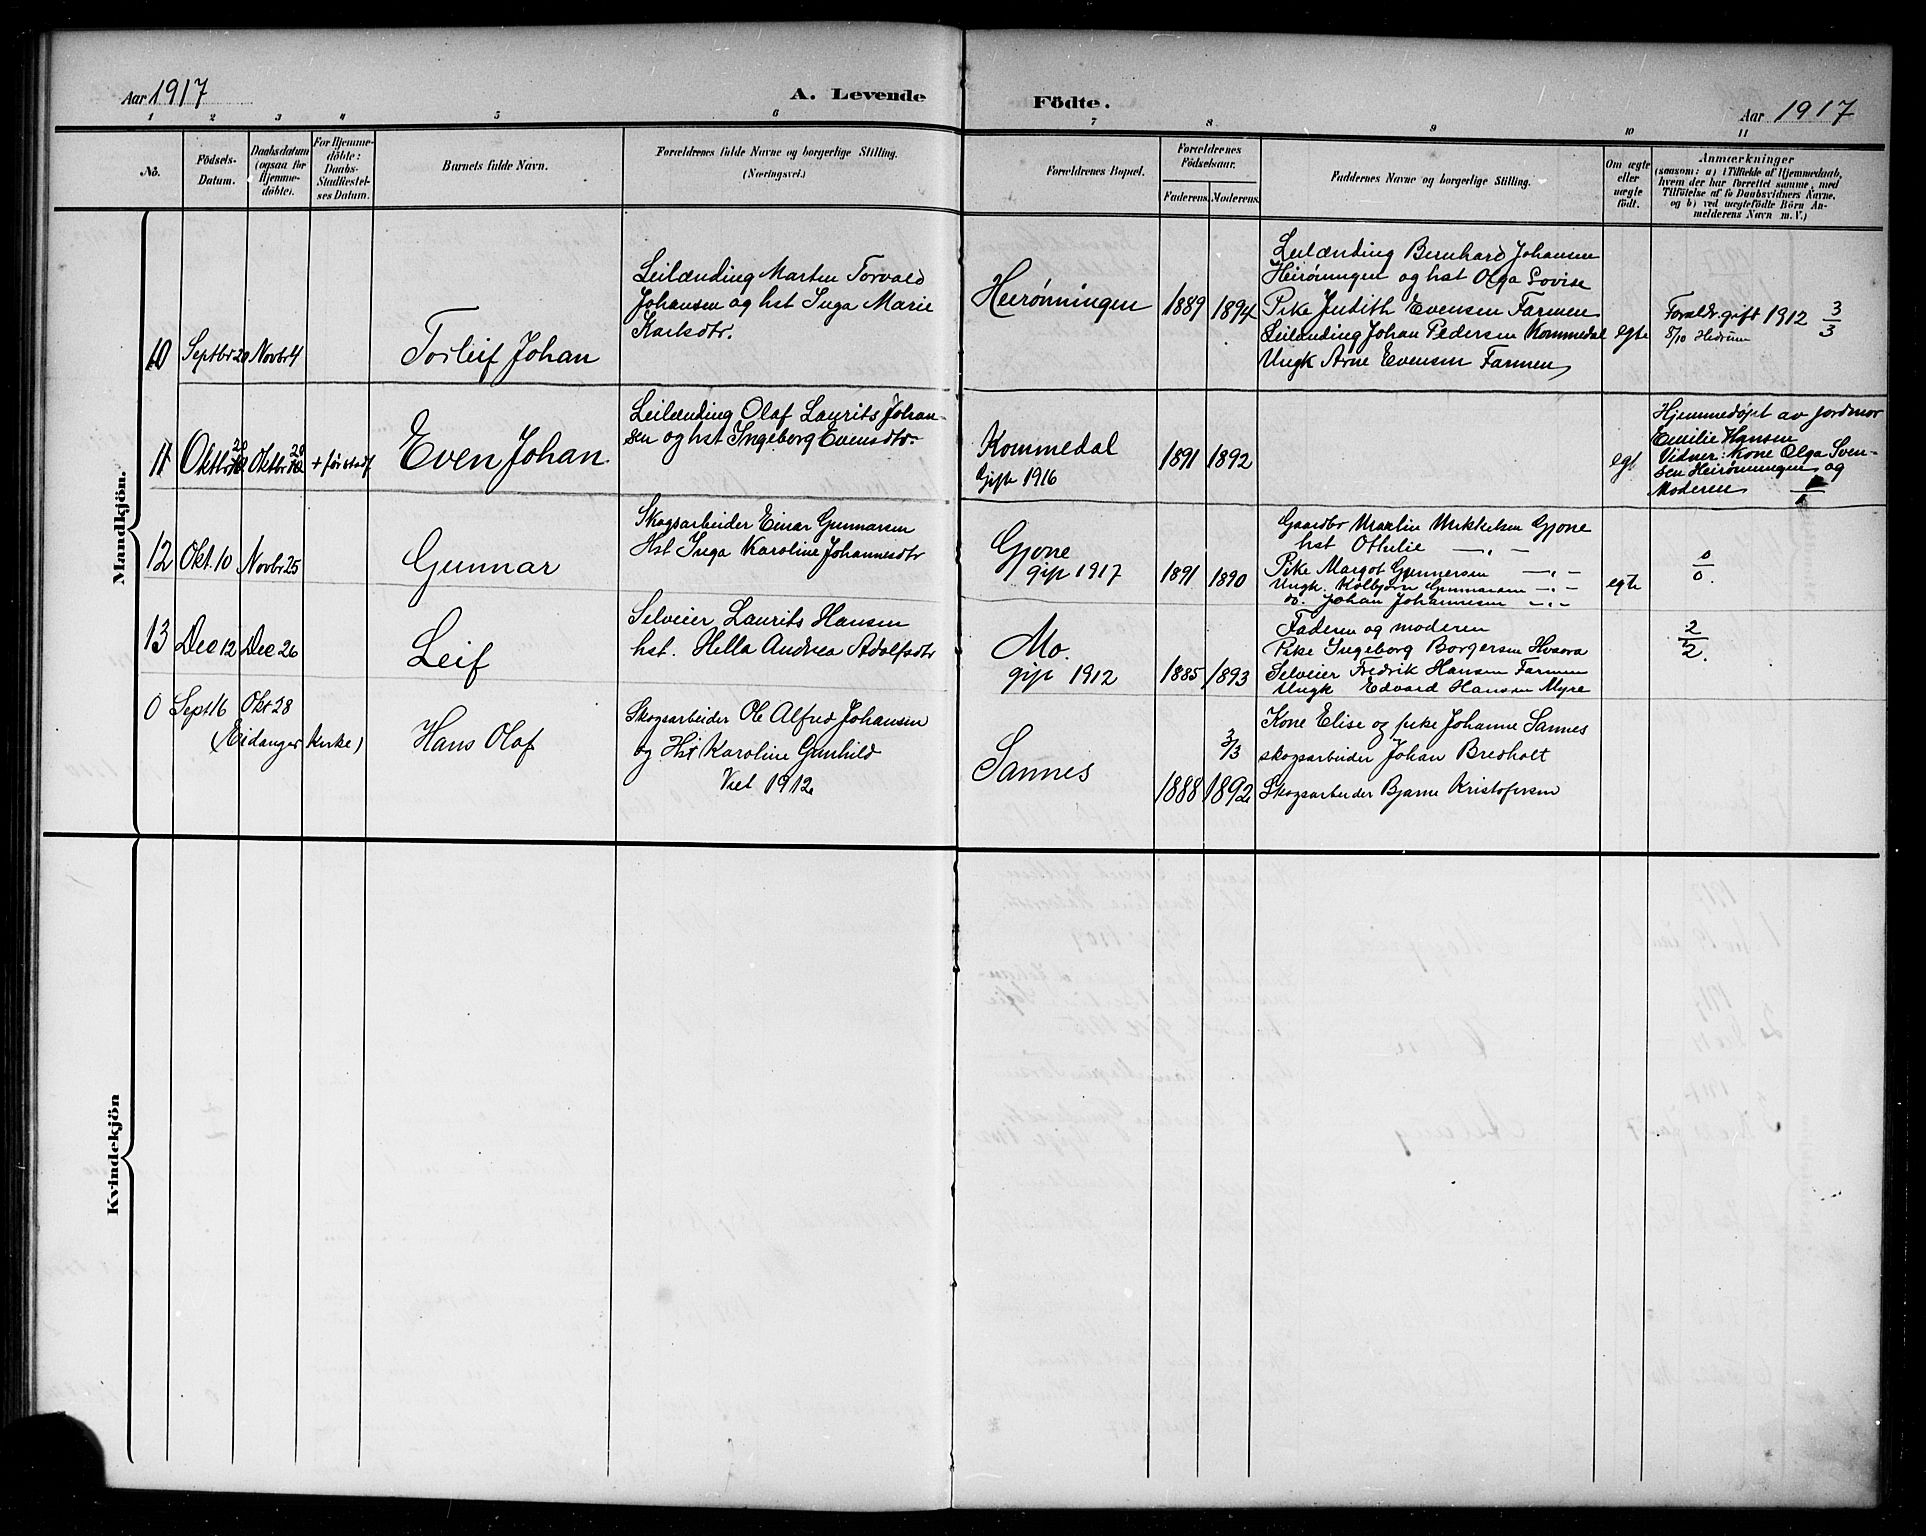 Aar 1917
A. Levende
Födte.
Aar 1917
1 2 3 4 5 6 7 8 9 10 11
No.
Födsels-
Datum.
Daabsdatum
(ogsaa for
Hjemme-
döbte).
For Hjemme-
döbte:
Daabs-
Stadfestel-
ses Datum.
Barnets fulde Navn.
Forældrenes fulde Navne og borgerlige Stilling.
(Næringsvei.)
Forældrenes Bopæl.
Forældrenes
Födselsaar.
Faderens. Moderens.
Faddernes Navne og borgerlige Stilling.
Om ægte
eller
uægte
födt.
Anmærkninger
(saasom: a) i Tilfælde af Hjemmedaab,
hvem der har forrettet samme, med
Tilföielse af to Daabsvidners Navne,
og b) ved uægtefödte Börn An-
melderens Navn m. V.)
Mandkjön.
10 Septbr 20 Novbr 4
Torleif Johan
Leilænding Martin Torvald
Johansen og hst Inga Marie
Karlsdtr.
Heirønningen 1889 1894
Leilænding Bernhard Johansen
Heirønningen og hst Olga Lovise
Pike Judith Evensen Farmen
Leilænding Johan Pedersen Kommedal
Ungk Arne Evensen Farmen
egte
Foreldr. gift 1912 3/3
8/10 Hedrum
11 Oktbr 20 Oktbr 20 + før stadf
Even Johan
Leilænding Olaf Laurits Johan-
sen og hst Ingeborg Evensdtr
Kommedal
Gift 1916
1891 1892
egt
Hjemmedøpt av jordmor
Emilie Hansen
Vidner: Kone Olga Sven-
sen Heirønningen og
Moderen 1/1
12 Okt. 10 Novbr 25
Gunnar
Skogsarbeider Einar Gunnarsen
Hst Inga Karoline Johannesdtr
Gjone
gift 1917 1891 1890
Gaardbr Martin Mikkelsen Gjone
hst Othelie — „ —
Pike Margot Gunnersen — „ —
Ungk. Kolbjørn Gunnarsen — „ —
do. Johan Johannesen — „ —
egte
0/0.
13 Dec 12 Dec 26
Leif
Selveier Laurits Hansen
hst. Hella Andrea Adolfsdtr
Mo.
gift 1912 1885 1893
Faderen og moderen
Pike Ingeborg Borgersen Hvaara
Selveier Fredrik Hansen Farmen
Ungk Edvard Hansen Myre
2/2.
0 Sept 16 Okt 28
(Eidanger Kirke)
Hans Olaf
Skogsarbeider Ole Alfred Johansen
og Hst Karoline Gunhild
Viet 1912
Sannes
3/3
1888 1892
Kone Elise og pike Johanne Sannes
skogsarbeider Johan Bredholt
Skogsarbeider Bjarne Kristofersen
Kvindekjön